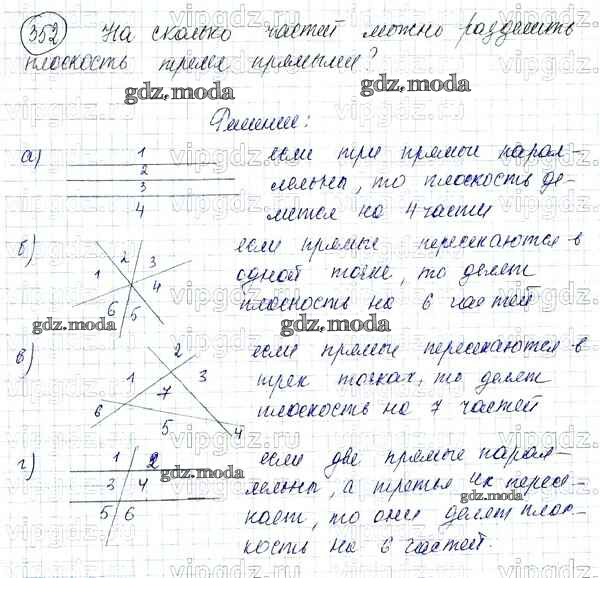 352 На сколько частей можно разделить
плоскость тремя прямыми?
gdz.moda gdz.moda
Решение:
а) 1 если три прямые парал-
2 лельны, то плоскость де-
3
4 лится на 4 части
б) 1 2 3 4 5 6 если прямые пересекаются в
одной точке, то делят
плоскость на 6 частей
gdz.moda gdz.moda
в) 1 2 3 4 5 6 7 если прямые пересекаются в
трех точках, то делят
плоскость на 7 частей
г) 1 2 если две прямые парал-
gdz.moda
3 4 лельны, а третья их пересе-
gdz.moda
5 6 кает, то они делят плос-
кость на 6 частей.
vipgdz.ru